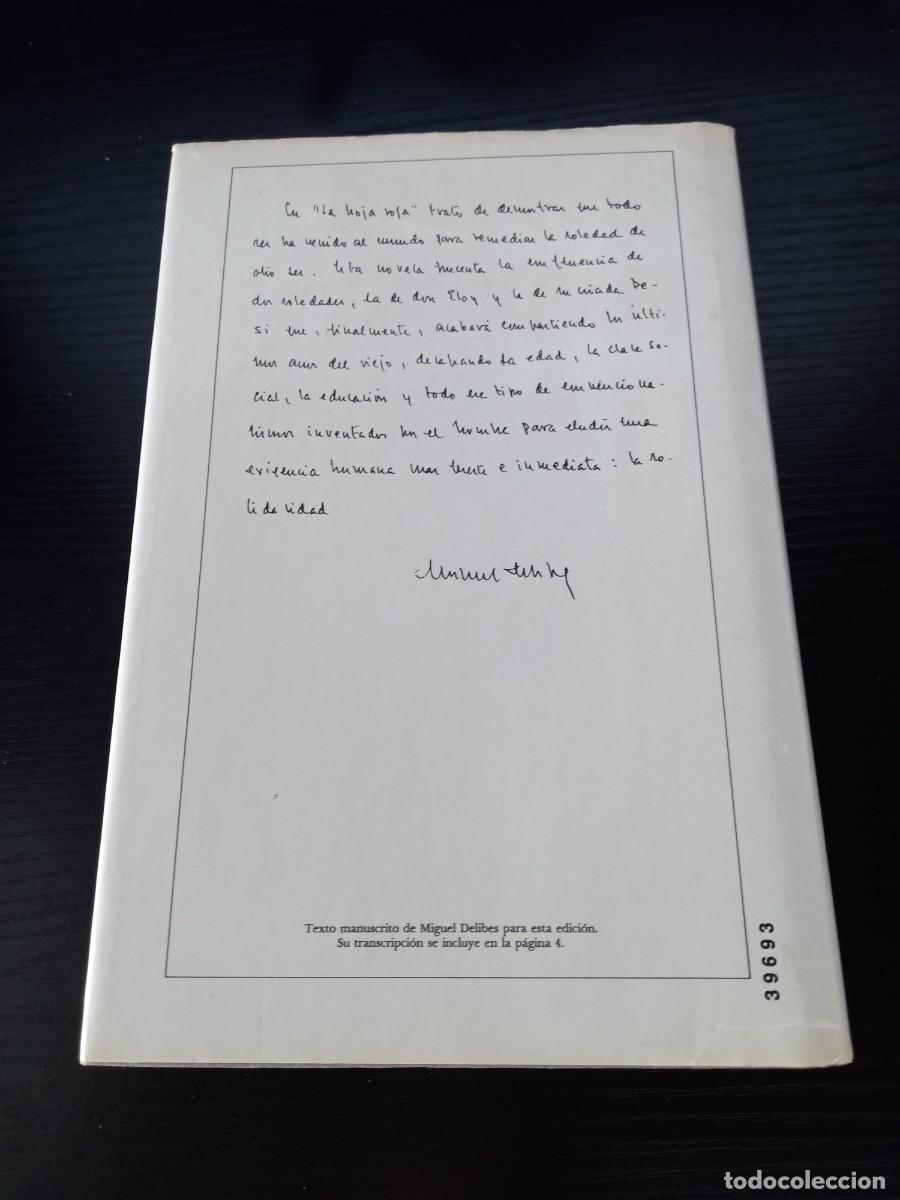 En "La hoja roja" trato de demostrar que todo
ser ha venido al mundo para remediar la soledad de
otro ser. Esta novela cuenta la confluencia de
dos soledades, la de don Eloy y la de su criada De-
si que, finalmente, acabará compartiendo los últi-
mos años del viejo, desechando la edad, la clase so-
cial, la educación y todo ese tipo de convenciona-
lismos inventados por el hombre para eludir una
exigencia humana más fuerte e inmediata: la so-
lidaridad
Miguel Delibes
Texto manuscrito de Miguel Delibes para esta edición.
Su transcripción se incluye en la página 4.
39693
todocoleccion